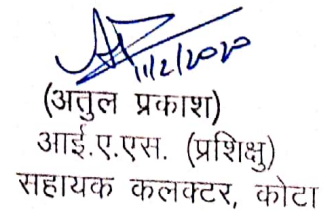 11/2/2020
(अतुल प्रकाश)
आई.ए.एस. (प्रशिक्षु)
सहायक कलक्टर, कोटा